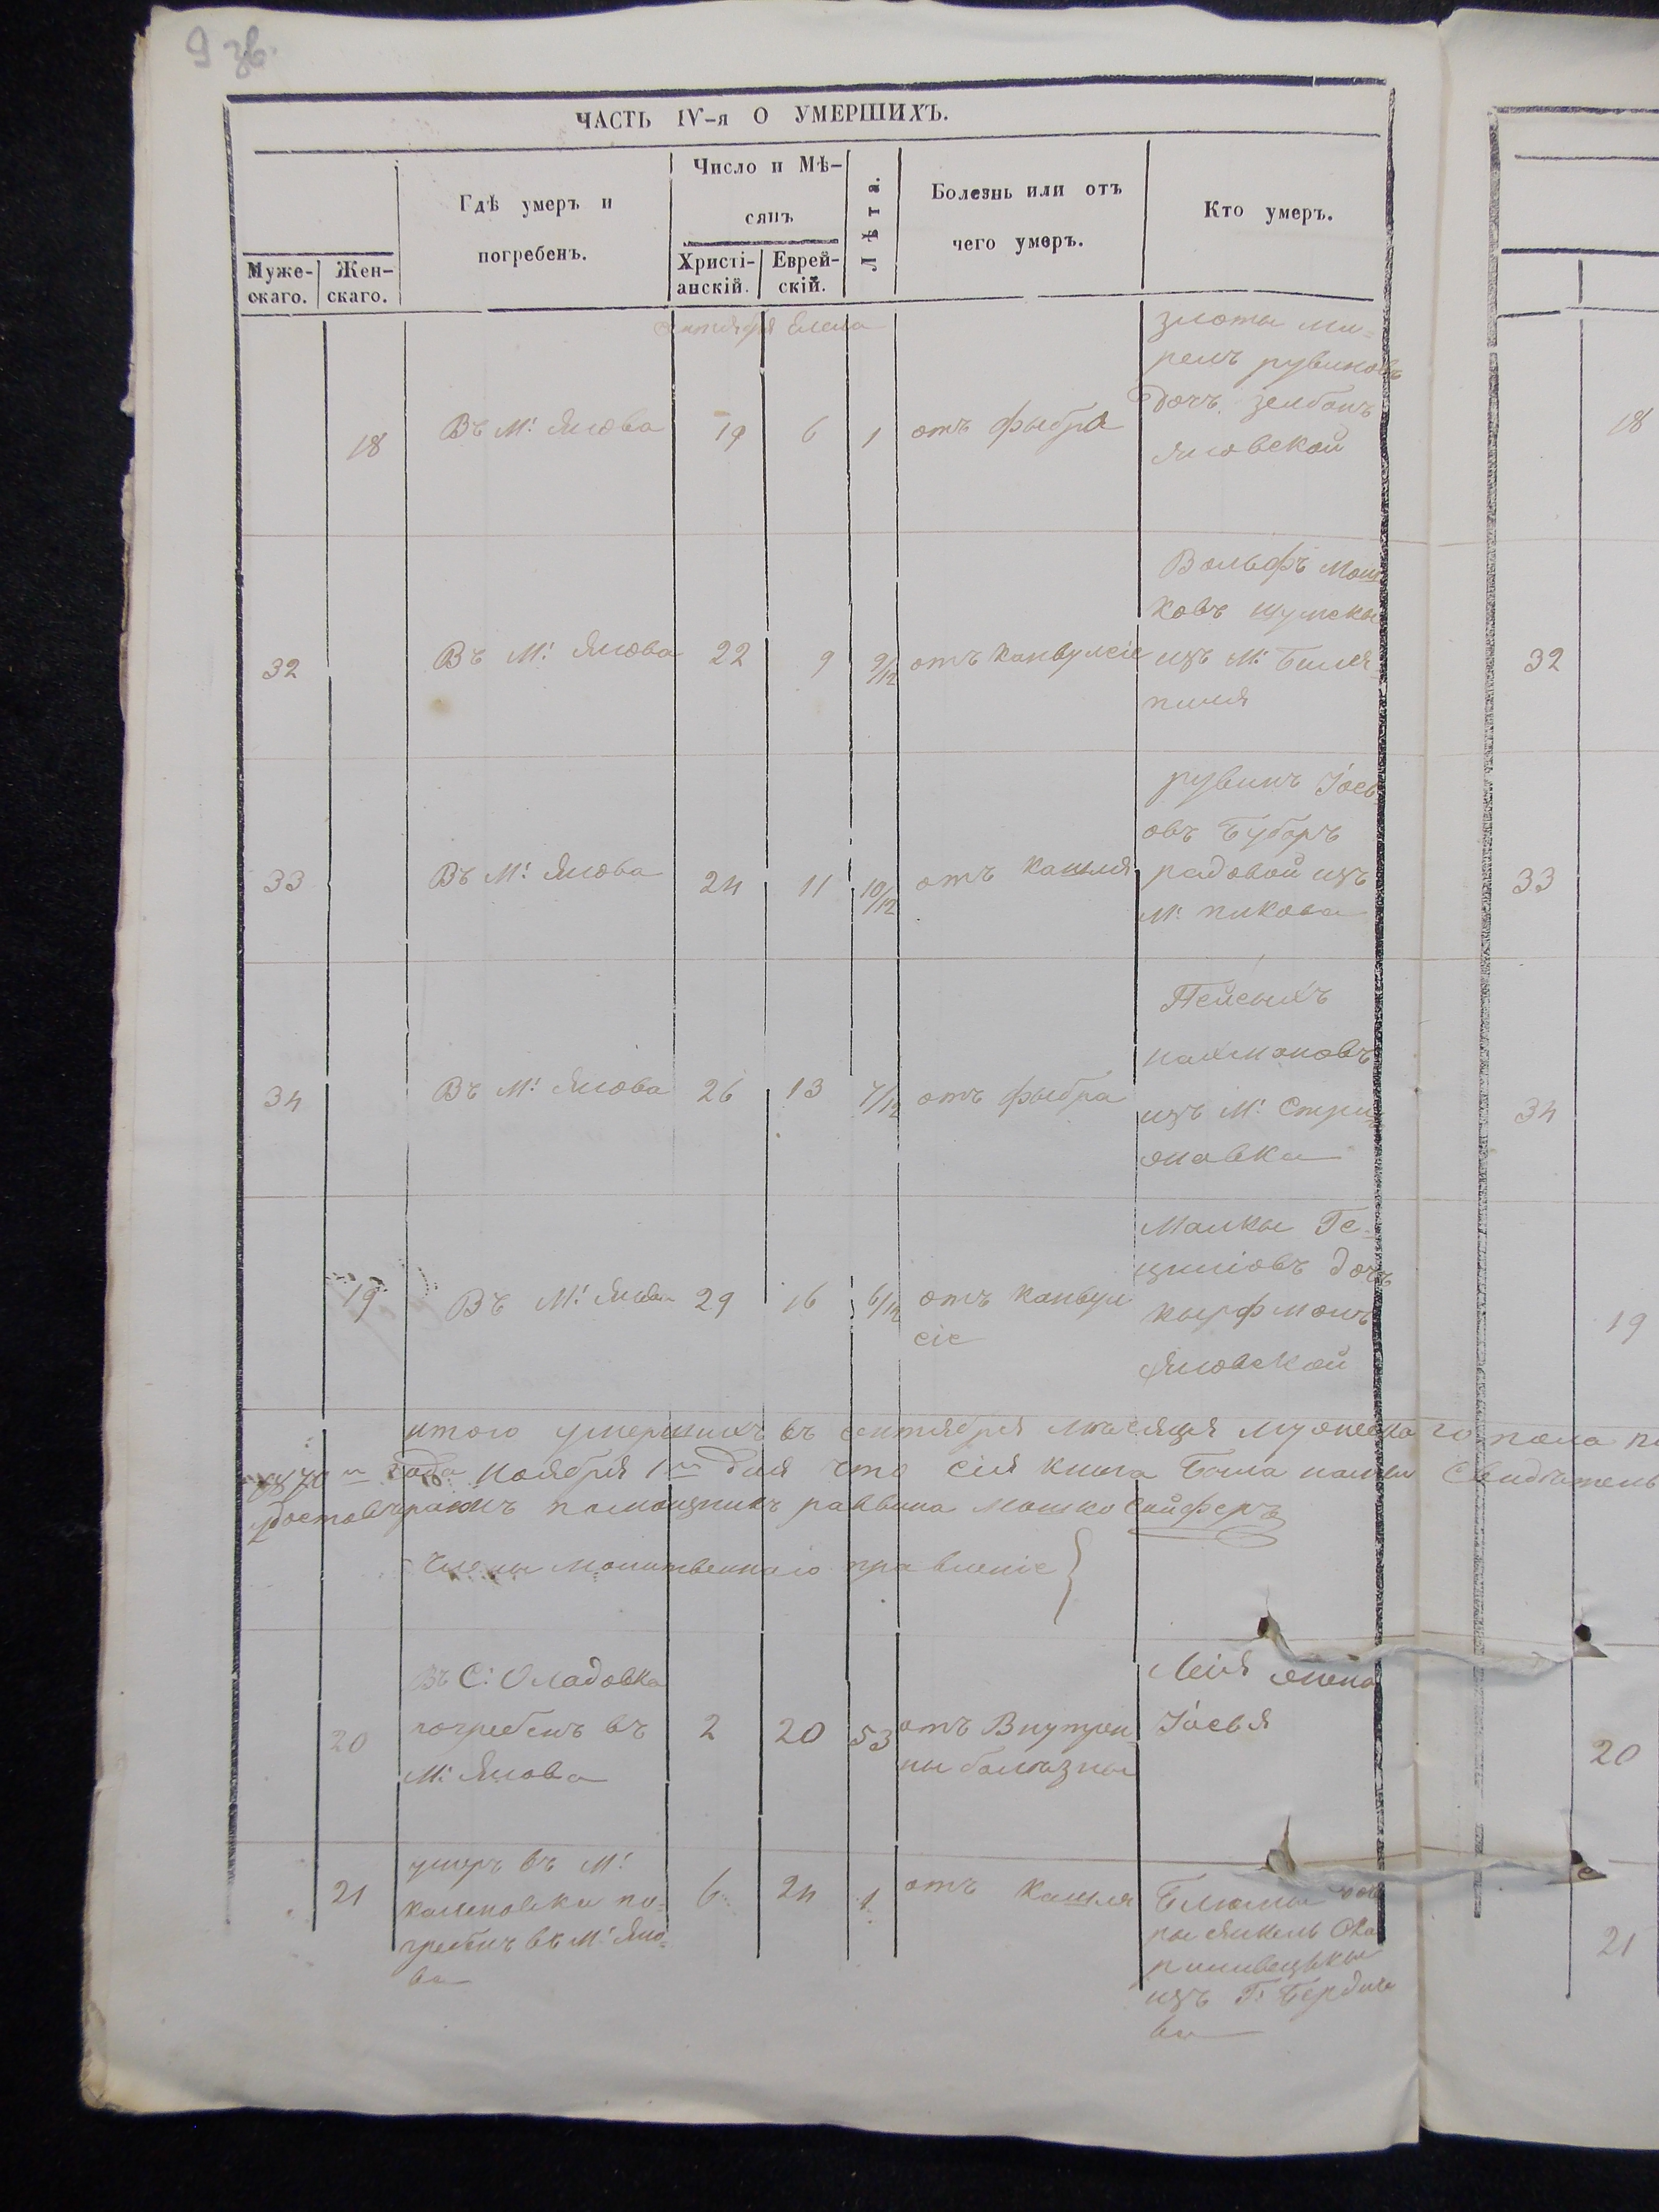 9 зв.
ЧАСТЬ IV-я О УМЕРШИХЪ.
Муже-
скаго.
Жен-
скаго.
Гдѣ умеръ и
погребенъ.
Число и Мѣ-
сяцъ
Христі-
анскій.
Еврей-
скій.
Лѣта.
Болезнь или отъ
чего умеръ.
Кто умеръ.
сентября Елела
18
Въ М: Янова
19
6
1
отъ фыбра
злоты ми-
рель рувиновъ
дочъ зелбанъ
яновской
32
Въ М: Янова
22
9
9/12
отъ канвулсіе
Вольфъ Мош
ковъ шумскы
изъ М: Биля-
пиля
33
Въ М: Янова
24
11
10/12
отъ кашля
рувинъ Іось
овъ Бубаръ
радовой изъ
М: пикова
34
Въ М: Янова
26
13
7/12
отъ фыбра
Пейсыхъ
нахмановъ
изъ М: Стри
жавка
19
Въ М: Янова
29
16
6/12
отъ канвул
сіе
Малкы Ге-
циліовъ дочъ
кырфманъ
Яновской
итого умершихъ въ сентября мѣсяця мужеска го пола
1870 года Ноября 1 дня что сія книга Была
помощникъ раввина Мошко Сойферъ
члены молитвеннаго правленіе
20
Въ С: Оладовка
погребенъ въ
М: Янова
2
20
53
отъ Внутрен-
ны болѣзны
Лейя жена
Іосья
21
умеръ въ М:
калиновка по-
гребенъ въ М: Яно-
ва
6
24
1
отъ кашля
Блюмы
изъ Г: Бердиче
ва
18
32
33
34
19
20
21